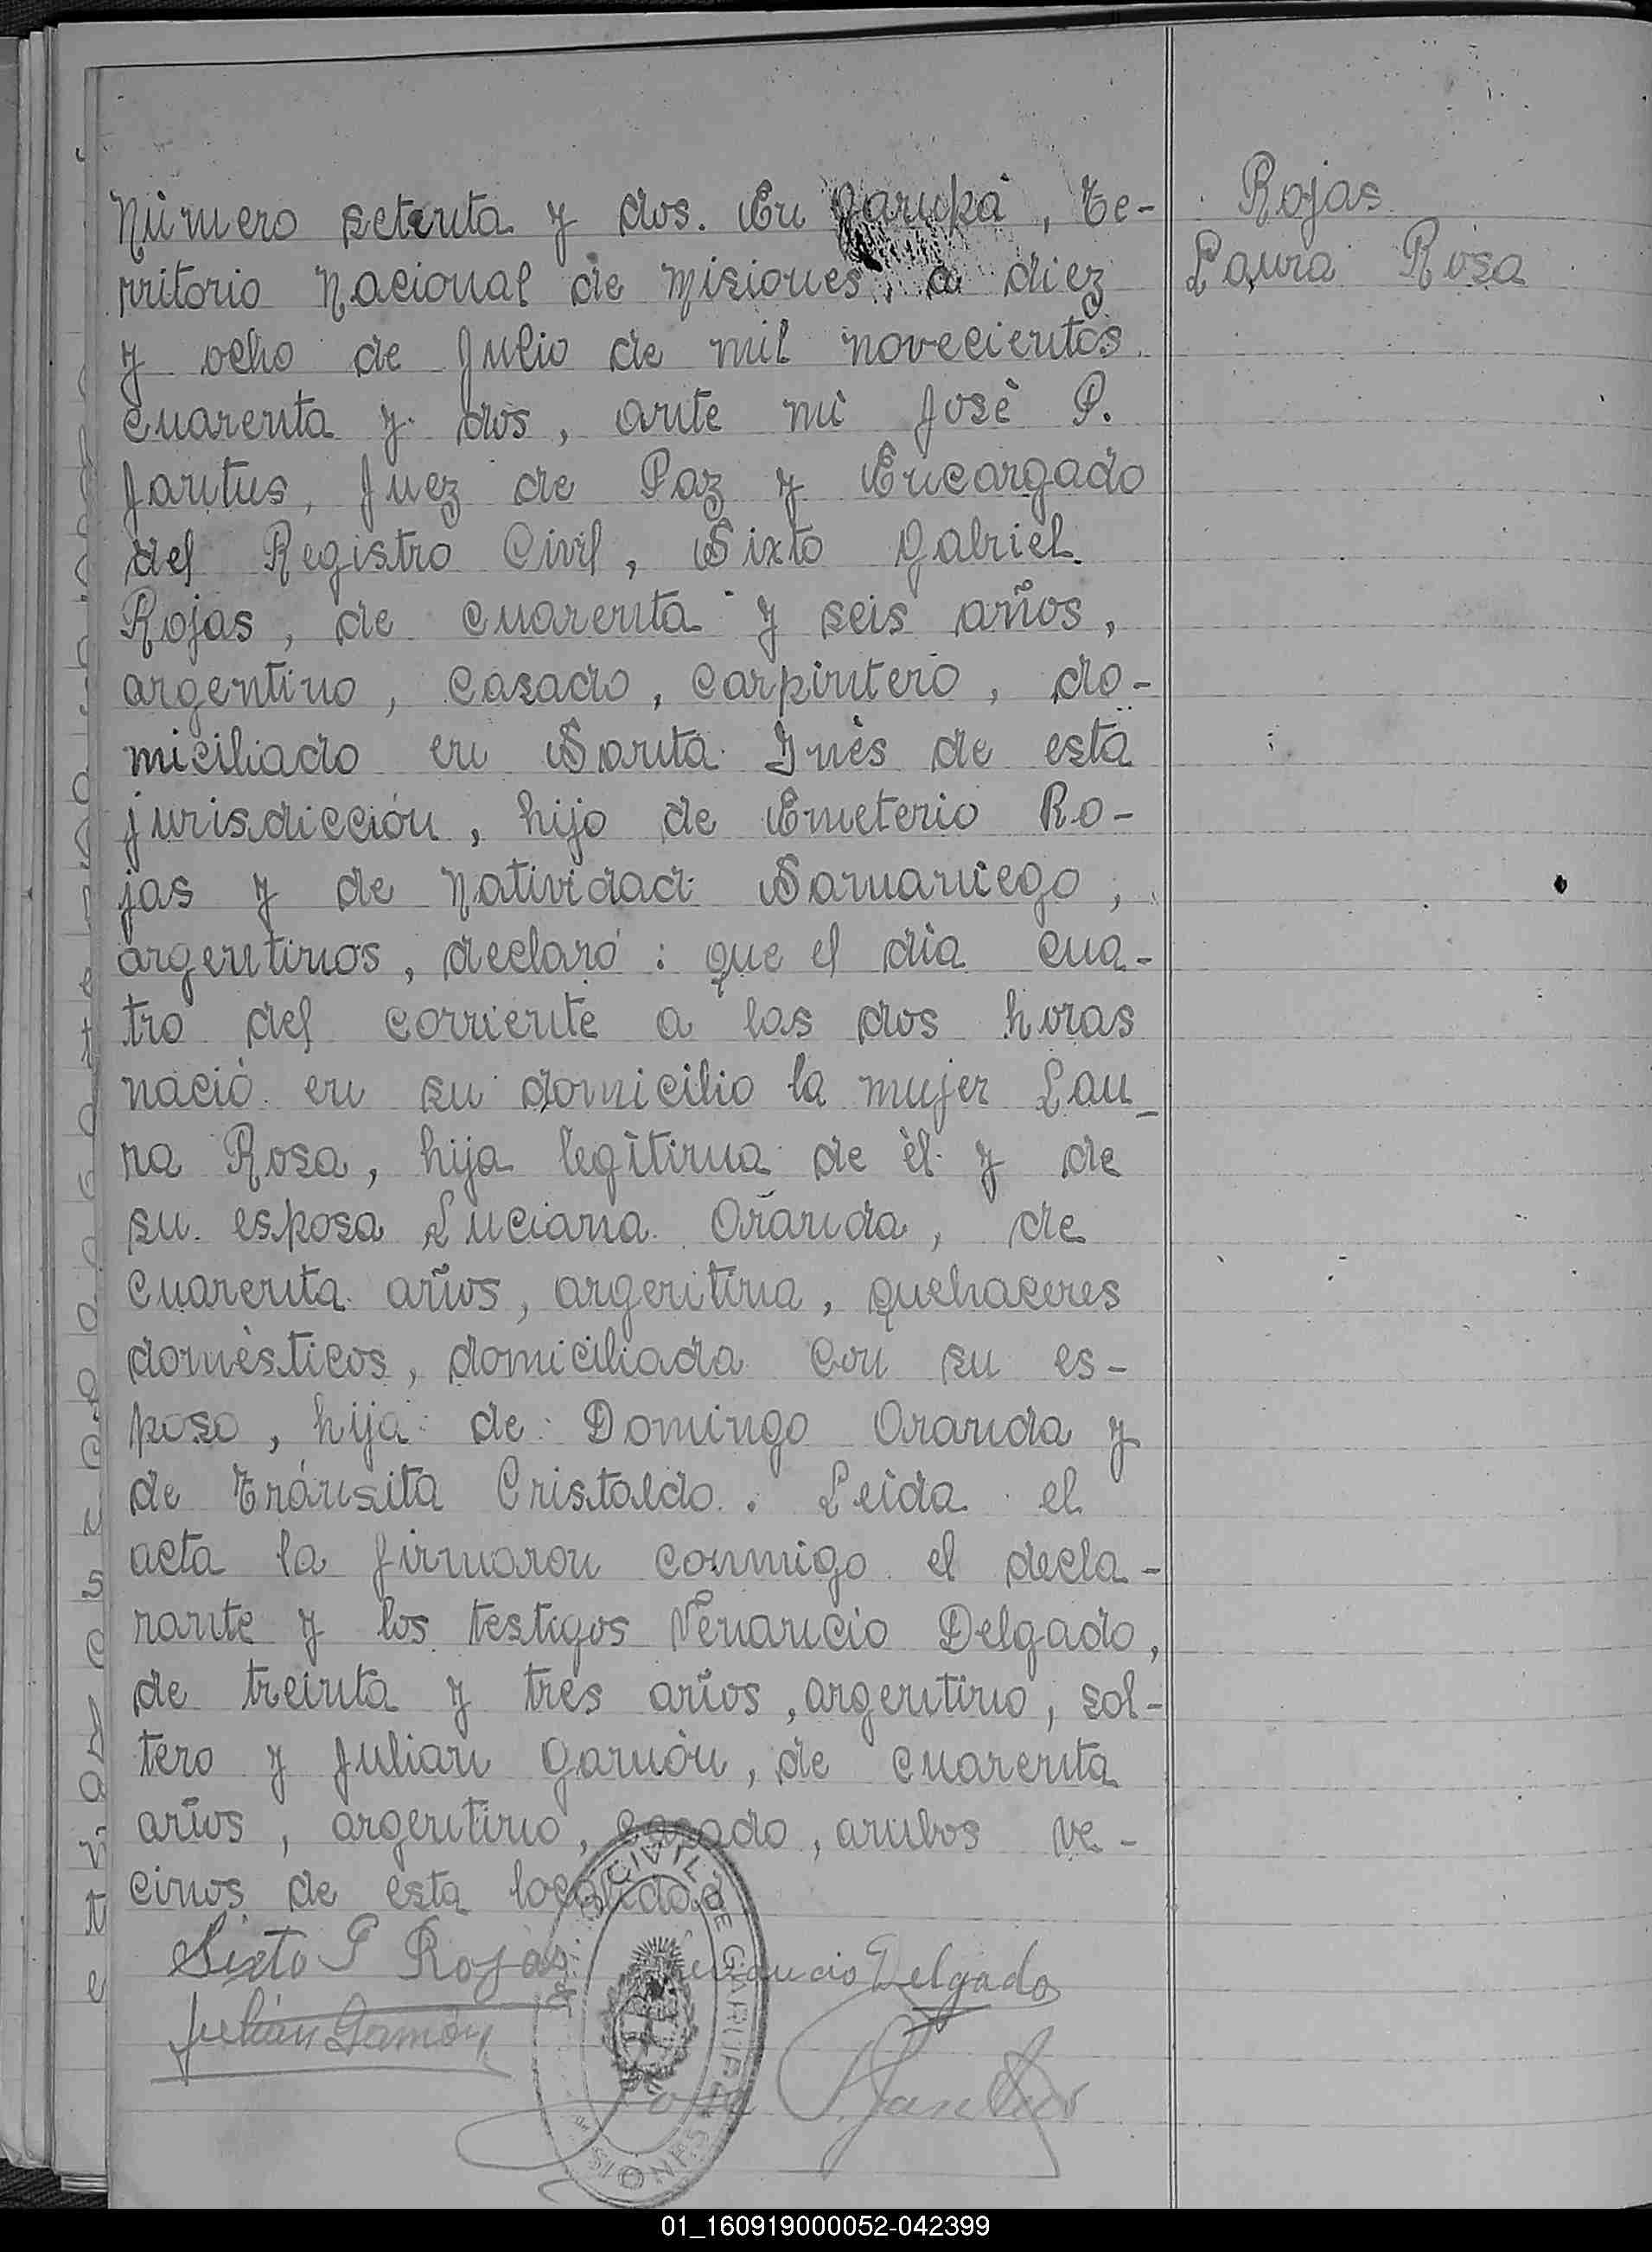 Rojas
Laura Rosa
Número setenta y dos. En Garupá, Te-
rritorio Nacional de Misiones, a diez
y ocho de Julio de mil novecientos
cuarenta y dos, ante mi José P.
Jantus, Juez de Paz y Encargado
del Registro Civil, Sixto Gabriel
Rojas, de cuarenta y seis años,
argentino, casado, carpintero, do-
miciliado en Santa Inés de esta
jurisdicción, hijo de Emeterio Ro-
jas y de Natividad Samaniego,
argentinos, declaró: que el día cua-
tro del corriente a las dos horas
nació en su domicilio la mujer Lau_
ra Rosa, hija legítima de él y de
su esposa Luciana Aranda, de
cuarenta años, argentina, quehaceres
domésticos, domiciliada con su es-
poso, hija de Domingo Aranda y
de Tránsita Cristaldo. Leida el
acta la firmaron conmigo el decla-
rante y los testigos Venancio Delgado,
de treinta y tres años, argentino, sol-
tero y Julian Gamón, de cuarenta
años, argentino, casado, ambos ve-
cinos de esta localidad
Sixto G Rojas Venancio Delgado
Julián Gamón
José P. Jantus
CIVIL DE GARUPA
MISIONES
01_160919000052-042399